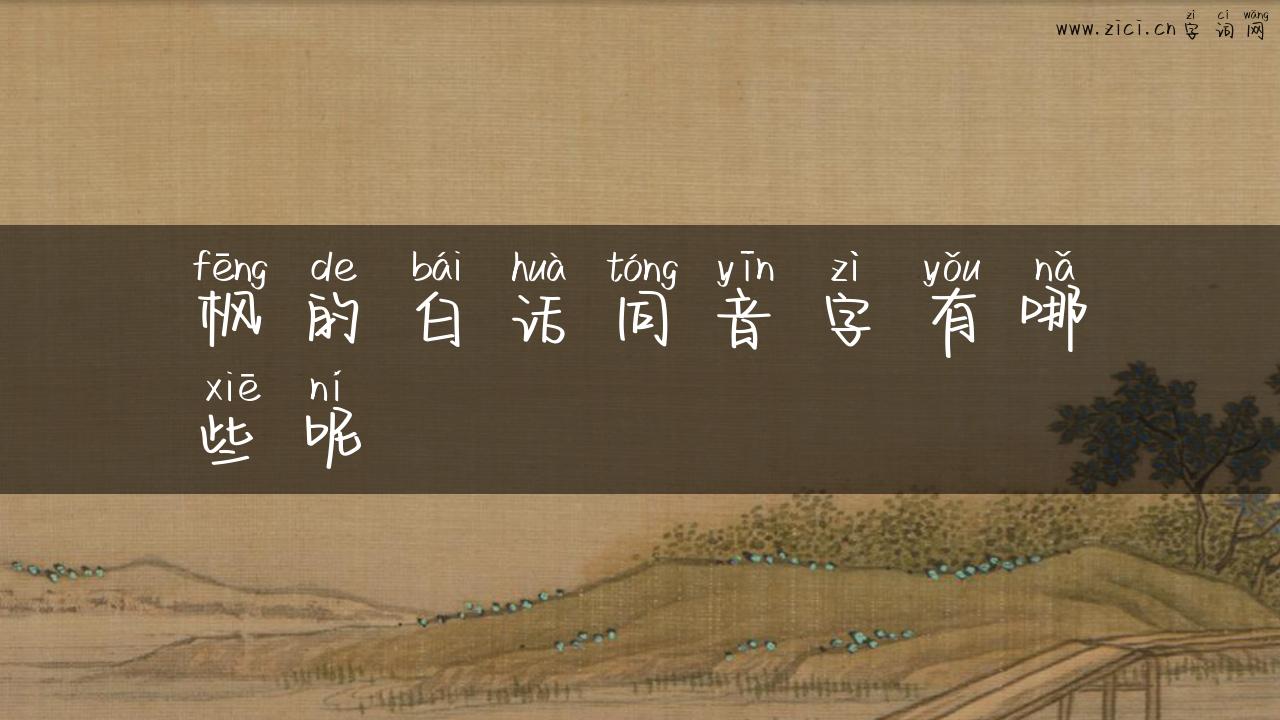 zì cí wǎng
www.zici.cn字词网
fēng de bái huà tóng yīn zì yǒu nǎ
枫的白话同音字有哪
xiē ní
些呢